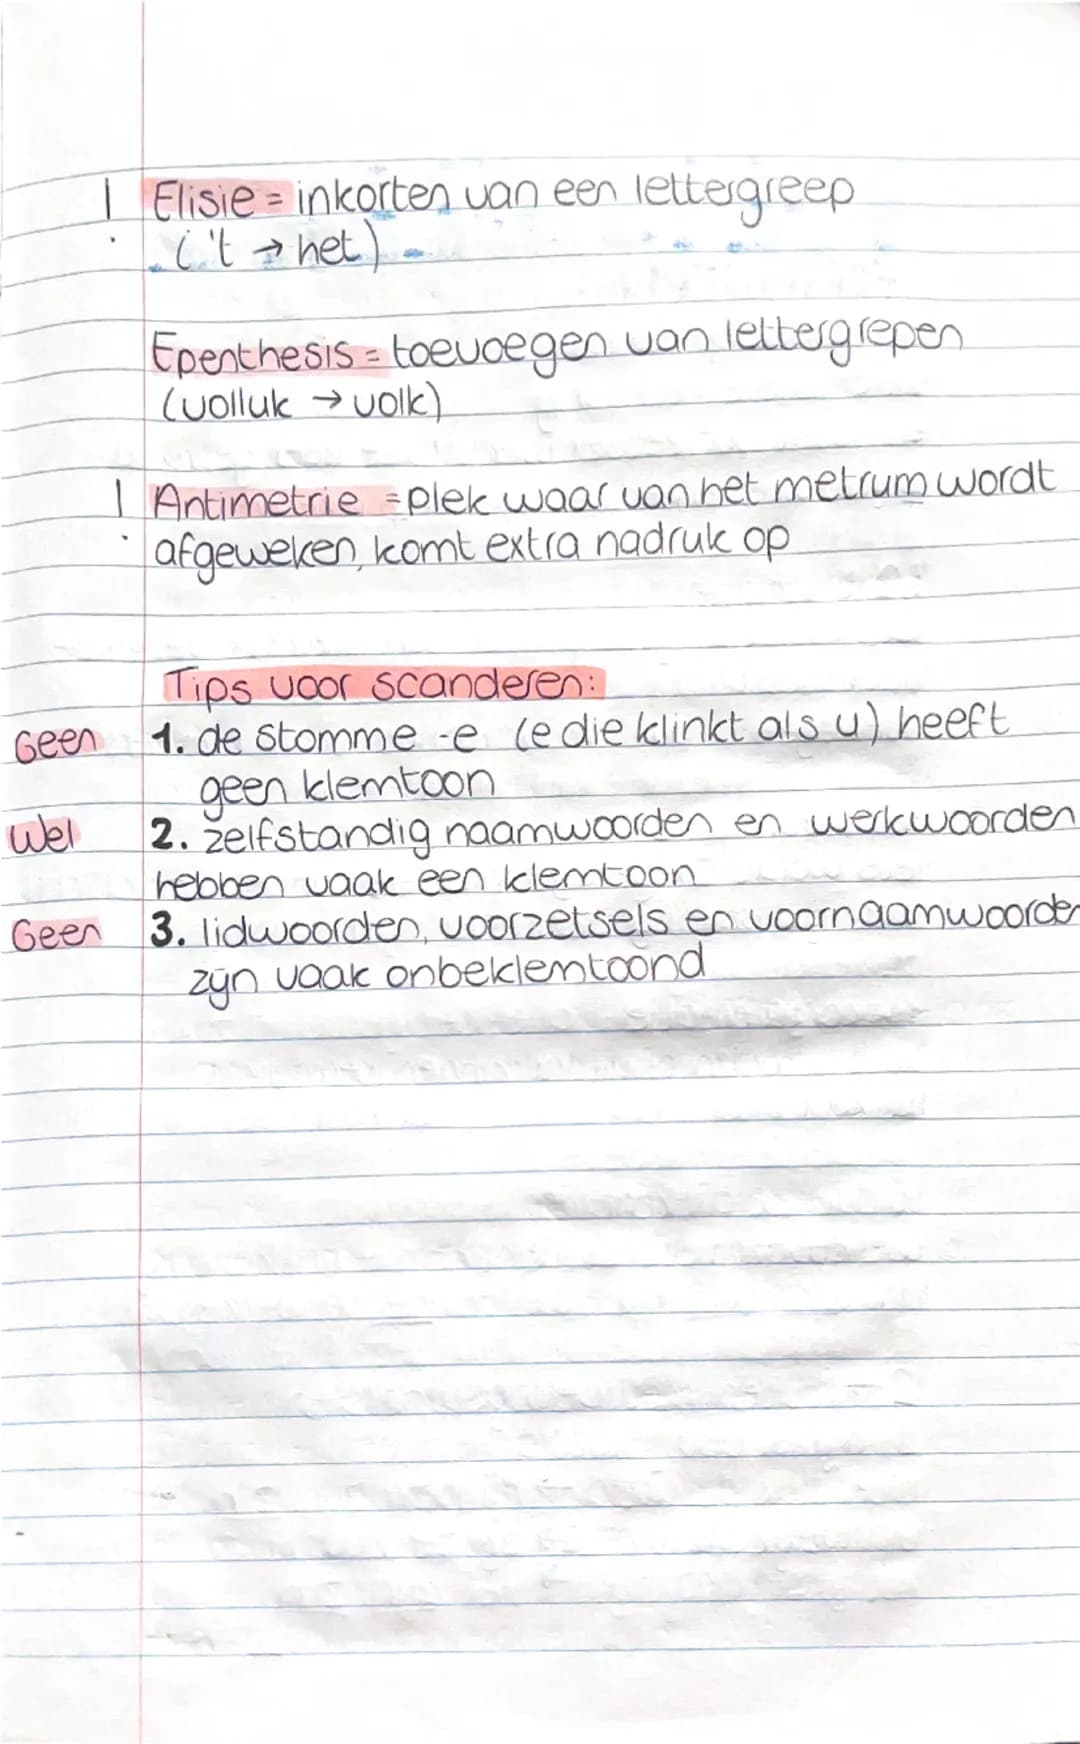 ! Elisie = inkorten van een lettergreep
('t → het)
Epenthesis = toevoegen van lettergrepen
(volluk → volk)
! Antimetrie = plek waar van het metrum wordt
afgeweken, komt extra nadruk op
Tips voor scanderen:
Geen 1. de stomme -e (e die klinkt als u) heeft
geen klemtoon
Wel 2. zelfstandig naamwoorden en werkwoorden
hebben vaak een klemtoon
Geen 3. lidwoorden, voorzetsels en voornaamwoorden
zijn vaak onbeklemtoond